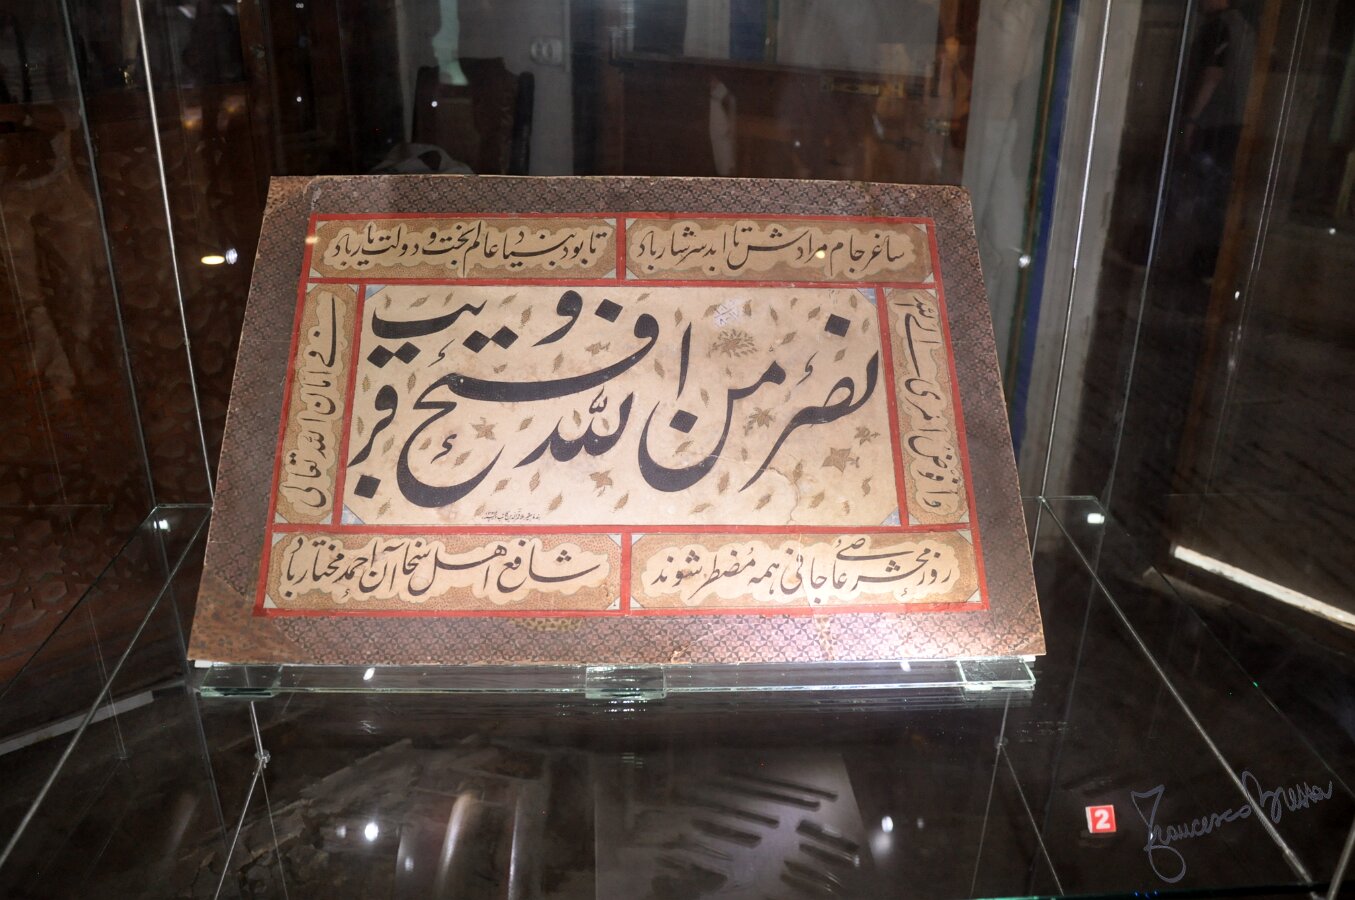 ساغر جام مرادش تا ابد سرشار باد
تا بود بنیاد عالم بخت و دولت یار باد
نصر من الله و فتح قریب
فی امان الله تعالی
روز محشر عاصی جانی همه مضطر شوند
شافع اهل سخا آن احمد مختار بی
2
Francesco Bressa